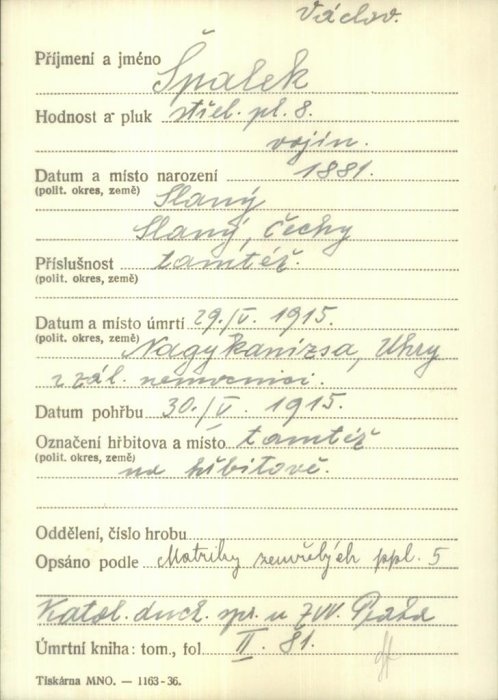 Václav.
Příjmení a jméno Špalek
Hodnost a pluk střel. pl. 8.
vojín.
Datum a místo narození 1881.
(polit. okres, země) Slaný
Slaný, Čechy
Příslušnost tamtéž.
(polit. okres, země)
Datum a místo úmrtí 29./V. 1915.
(polit. okres, země) Nagykanizsa, Uhry
v zál. nemocnici.
Datum pohřbu 30./V. 1915.
Označení hřbitova a místo tamtéž
(polit. okres, země) na hřbitově.
Oddělení, číslo hrobu
Opsáno podle Matriky zemřelých ppl. 5
Katol. duch. spr. u ZVV. Praha
Úmrtní kniha: tom., fol II. 81.
Tiskárna MNO. — 1163-36.